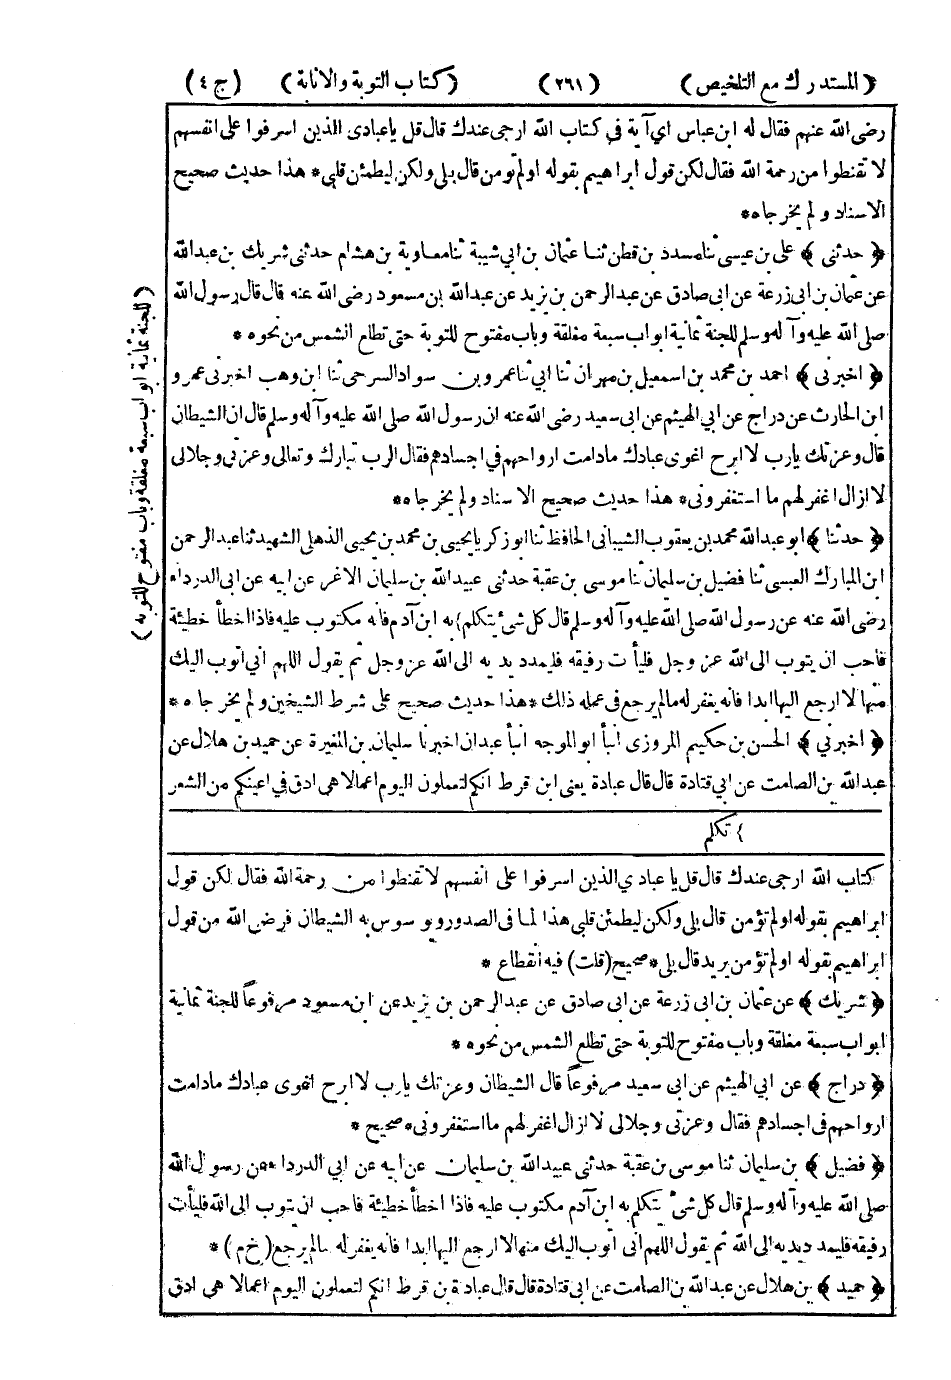 ﴿ المستدرك مع التلخيص ﴾ (٢٦١) ﴿ كتاب التوبة والانابة ﴾ (ج ٤)
رضى الله عنهم فقال له ابن عباس اي آية في كتاب الله ارجى عندك قال قل يا عبادى الذين اسرفوا على انفسهم
لا تقنطوا من رحمة الله فقال لكن قول ابراهيم بقوله اولم تؤمن قال بلى ولكن ليطمئن قلبى * هذا حديث صحيح
الاسناد ولم يخرجاه *
﴿ حدثنى ﴾ على بن عيسى ثنا مسدد بن قطن ثنا عثمان بن ابي شيبة ثنا معاوية بن هشام حدثنى شريك بن عبدالله
عن عثمان بن ابى زرعة عن ابى صادق عن عبدالرحمن بن يزيد عن عبدالله بن مسعود رضى الله عنه قال قال رسول الله
صلى الله عليه وآله وسلم للجنة ثمانية ابواب سبعة مغلقة وباب مفتوح للتوبة حتى تطلع الشمس من نحوه *
﴿ اخبرنى ﴾ احمد بن محمد بن اسمعيل بن مهران ثنا ابي ثنا عمرو بن سواد السرحى ثنا ابن وهب اخبرنى عمرو
ابن الحارث عن دراج عن ابي الهيثم عن ابى سعيد رضى الله عنه ان رسول الله صلى الله عليه وآله وسلم قال ان الشيطان
قال وعزتك يارب لا ابرح اغوى عبادك مادامت ارواحهم في اجسادهم فقال الرب تبارك وتعالى وعزتي وجلالى
لا ازال اغفر لهم ما استغفرونى * هذا حديث صحيح الاسناد ولم يخرجاه *
﴿ حدثنا ﴾ ابو عبدالله محمد بن يعقوب الشيبانى الحافظ ثنا ابو زكريا يحيى بن محمد بن يحيى الذهلى الشهيد ثنا عبد الرحمن
ابن المبارك العبسى ثنا فضيل بن سليمان ثنا موسى بن عقبة حدثنى عبيد الله بن سلمان الاغر عن ابيه عن ابى الدرداء
رضى الله عنه عن رسول الله صلى الله عليه وآله وسلم قال كل شئ يتكلم } به ابن آدم فانه مكتوب عليه فاذا اخطأ خطيئة
فاحب ان يتوب الى الله عز وجل فليأت رفيقه فليمدد يديه الى الله عز وجل ثم يقول اللهم اني اتوب اليك
منها لا ارجع اليها ابدا فانه يغفر له مالم يرجع في عمله ذلك * هذا حديث صحيح على شرط الشيخين ولم يخرجاه *
﴿ اخبرني ﴾ الحسن بن حكيم المروزى انبأ ابو الموجه انبأ عبدان اخبرنا سليمان بن المغيرة عن حميد بن هلال عن
عبدالله بن الصامت عن ابي قتادة قال قال عبادة يعنى ابن قرط انكم لتعملون اليوم اعمالا هى ادق في اعينكم من الشعر
} تكلم
كتاب الله ارجى عندك قال قل يا عبادي الذين اسرفوا على انفسهم لا تقنطوا من رحمة الله فقال لكن قول
ابراهيم بقوله اولم تؤمن قال بلى ولكن ليطمئن قلبى هذا لما فى الصدور ويوسوس به الشيطان فرضى الله من قول
ابراهيم بقوله اولم تؤمن يريد قال بلى * صحيح (قلت) فيه انقطاع *
﴿ شريك ﴾ عن عثمان بن ابى زرعة عن ابى صادق عن عبدالرحمن بن يزيد عن ابن مسعود مرفوعاً للجنة ثمانية
ابواب سبعة مغلقة وباب مفتوح للتوبة حتى تطلع الشمس من نحوه *
﴿ دراج ﴾ عن ابي الهيثم عن ابى سعيد مرفوعاً قال الشيطان وعزتك يارب لا ابرح اغوى عبادك مادامت
ارواحهم فى اجسادهم فقال وعزتى وجلالى لا ازال اغفر لهم ما استغفرونى * صحيح *
﴿ فضيل ﴾ بن سليمان ثنا موسى بن عقبة حدثنى عبيد الله بن سلمان عن ابيه عن ابي الدرداء عن رسول الله
صلى الله عليه وآله وسلم قال كل شئ يتكلم به ابن آدم مكتوب عليه فاذا اخطأ خطيئة فاحب ان يتوب الى الله فليأت
رفيقه فليمدد يديه الى الله ثم يقول اللهم انى اتوب اليك منها لا ارجع اليها ابدا فانه يغفر له مالم يرجع (خ م) *
﴿ حميد ﴾ بن هلال عن عبدالله بن الصامت عن ابى قتادة قال قال عبادة بن قرط انكم لتعملون اليوم اعمالا هى ادق
(للجنة ثمانية ابواب سبعة مغلقة وباب مفتوح للتوبة)